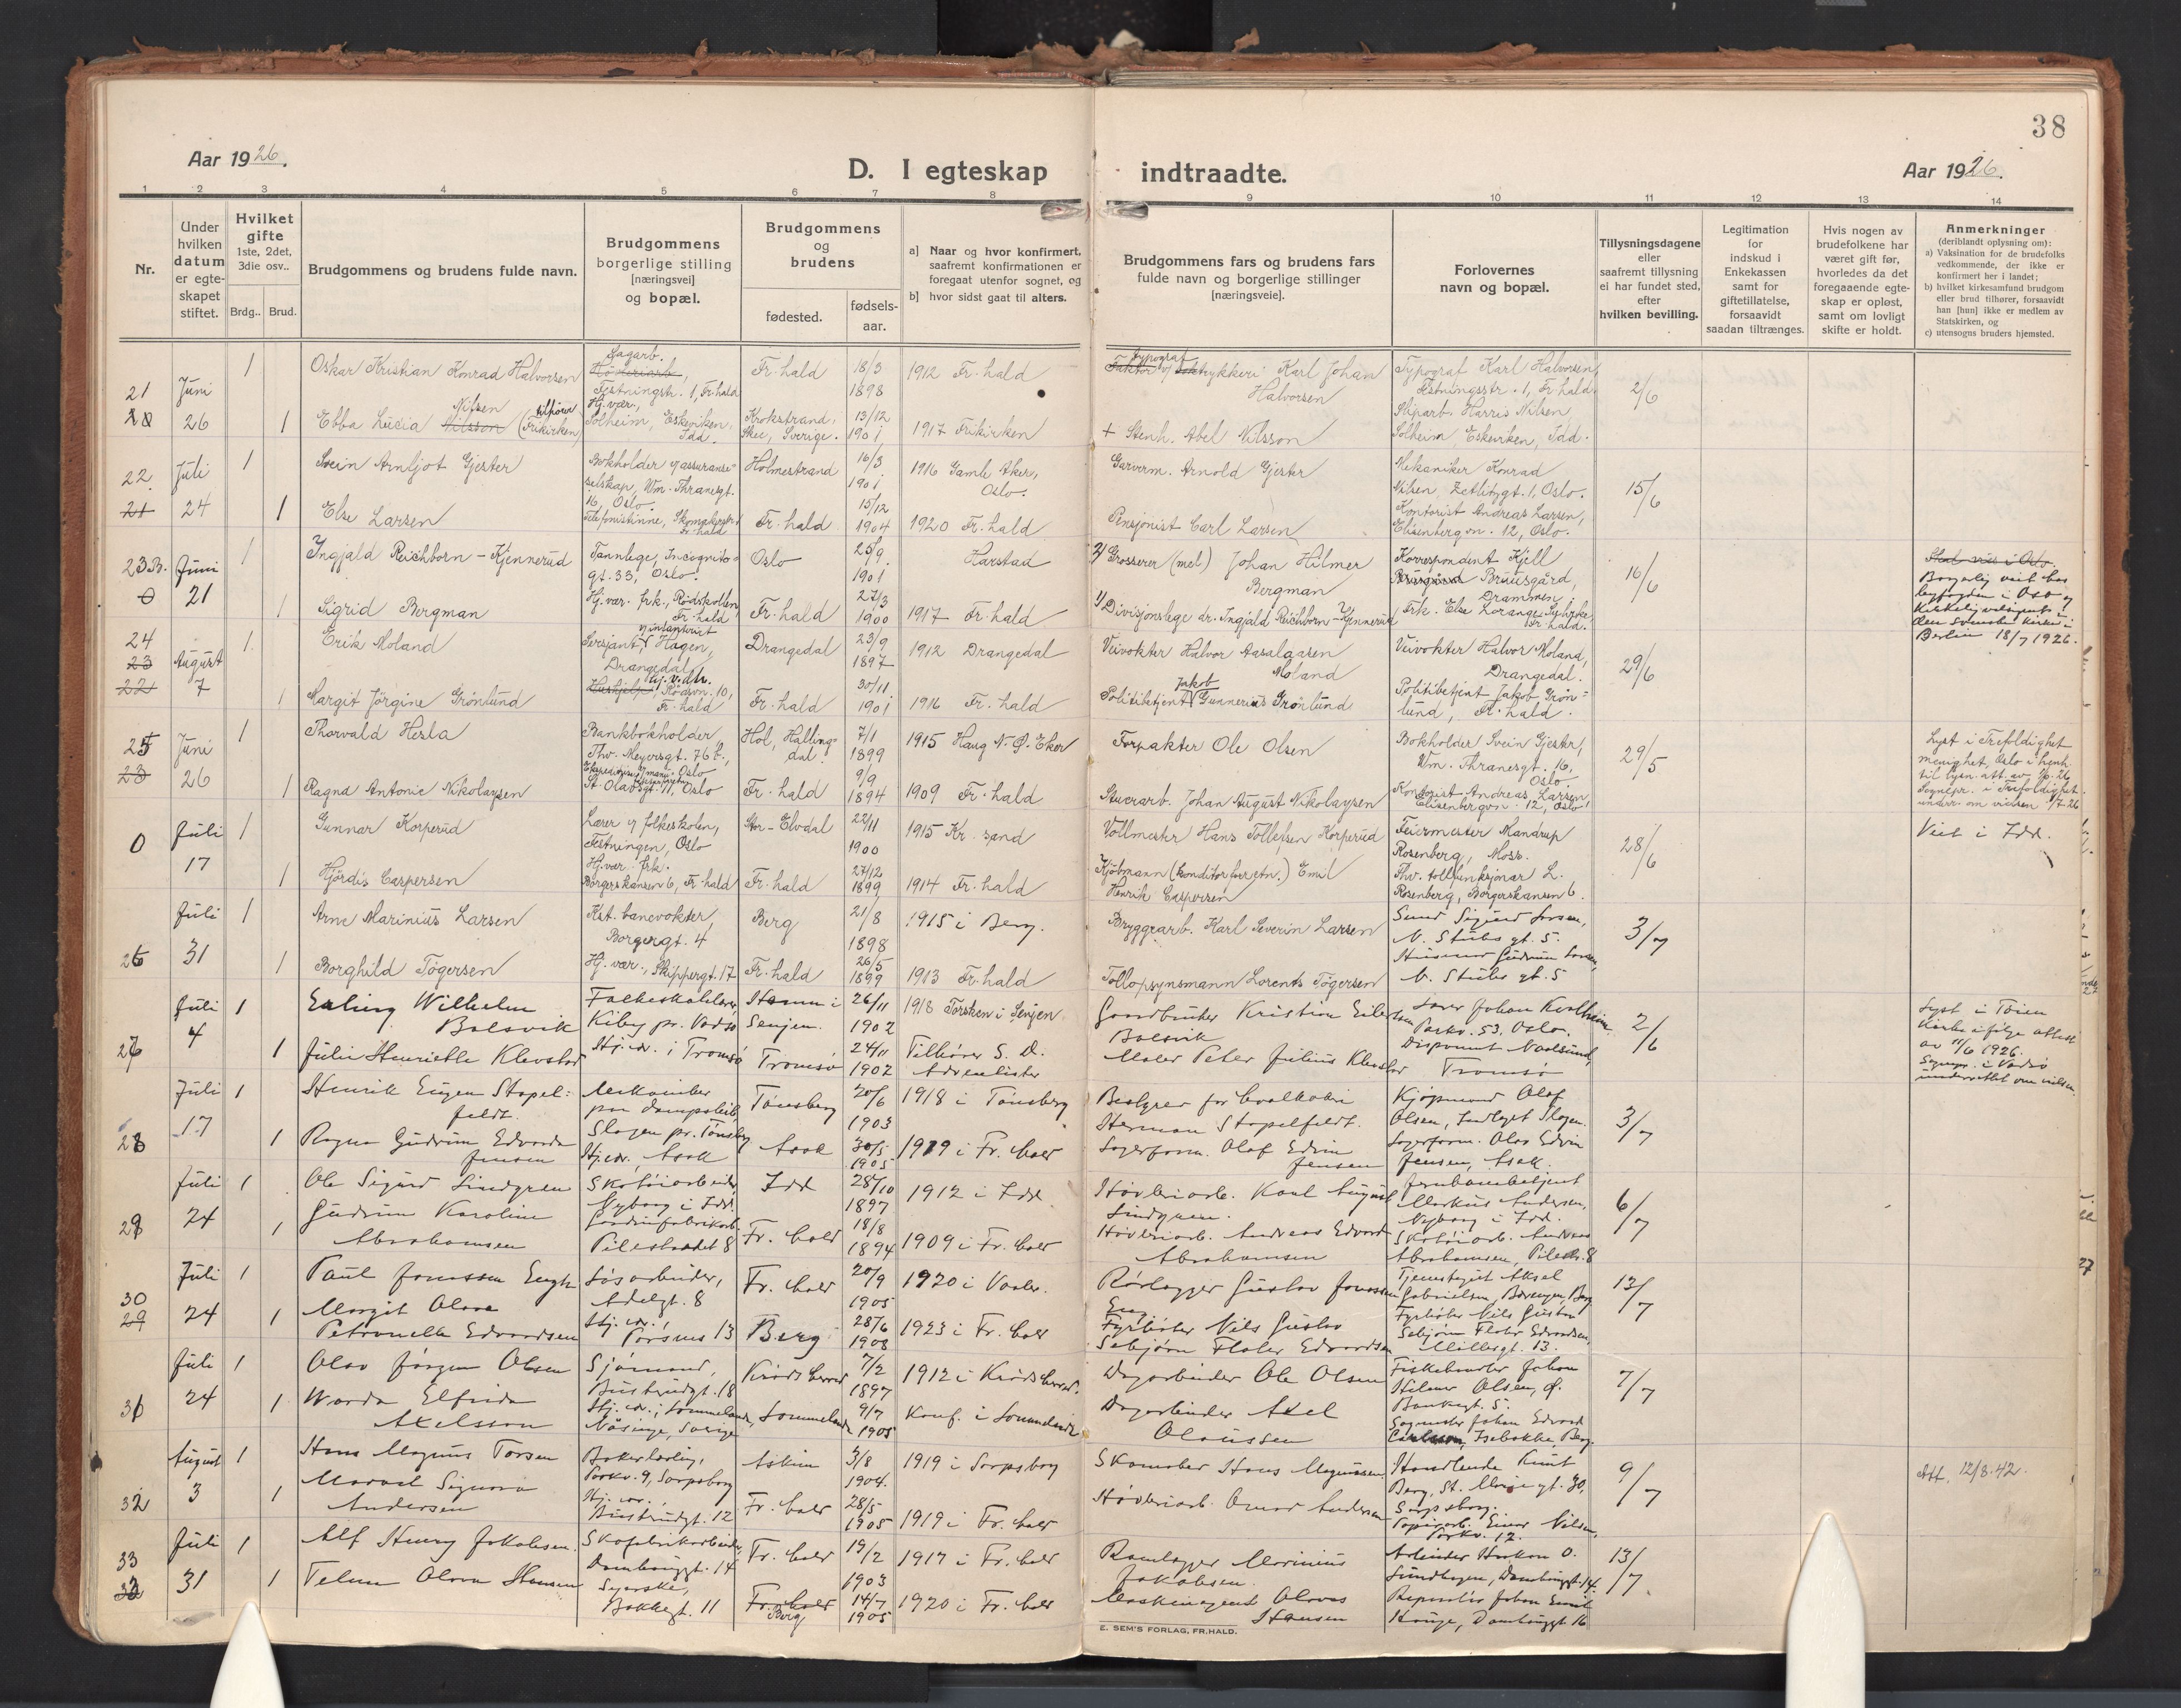 38
Aar 1926.
D. I egteskap indtraadte.
Aar 1926.
1 2 3 4 5 6 7 8 9 10 11 12 13 14
Nr.
Under hvilken datum er egte-skapet stiftet.
Hvilket gifte 1ste, 2det, 3die osv..
Brdg.. Brud.
Brudgommens og brudens fulde navn.
Brudgommens borgerlige stilling [næringsvei] og bopæl.
Brudgommens og brudens
fødested.
fødsels-aar.
a] Naar og hvor konfirmert, saafremt konfirmationen er foregaat utenfor sognet, og
b] hvor sidst gaat til alters.
Brudgommens fars og brudens fars fulde navn og borgerlige stillinger [næringsveie].
Forlovernes navn og bopæl.
Tillysningsdagene eller saafremt tillysning ei har fundet sted, efter hvilken bevilling.
Legitimation for indskud i Enkekassen samt for giftetillatelse, forsaavidt saadan tiltrænges.
Hvis nogen av brudefolkene har været gift før, hvorledes da det foregaaende egte-skap er opløst, samt om lovligt skifte er holdt.
Anmerkninger (deriblandt oplysning om):
a) Vaksination for de brudefolks vedkommende, der ikke er konfirmert her i landet;
b) hvilket kirkesamfund brudgom eller brud tilhører, forsaavidt han [hun] ikke er medlem av Statskirken, og
c) utensogns bruders hjemsted.
21 Juni 26
1 Oskar Kristian Konrad Halvorsen
Sagarb. Festningstr. 1, Fr.hald
Fr.hald 18/3 1898
1912 Fr.hald
typograf Karl Johan Halvorsen
Typograf Karl Halvorsen, Festningsstr. 1, Fr.hald.
2/6
1 Ebba Lucia Nilsen Nilsson (tilhører Frikirken)
Hj.vær., Solheim, Eskeviken, Idd.
Krokstrand, Skee, Sverige. 13/12 1901
1917 Frikirken
+ Stenh. Abel Nilsson
Sliparb. Harris Nilsen, Solheim, Eskeviken, Idd.
22. 21 Juli 24
1 Svein Arnljot Gjester
Bokholder v/ assuranse-selskap, Wm. Thranesgt. 16, Oslo.
Holmestrand 16/3 1901
1916 Gamle Aker, Oslo.
Garverm. Arnold Gjester
Mekaniker Konrad Nilsen, Zetlitzgt. 1, Oslo.
15/6
1 Else Larsen
Telefonistinne, Fr.hald
Fr.hald 15/12 1904
1920 Fr.hald
Pensjonist Carl Larsen
Kontorist Andreas Larsen, Elisenberg vn. 12, Oslo.
23B. 0 Juni 21
1 Ingjald Reichborn-Kjennerud
Tannlege, Incognito-gt. 33, Oslo.
Oslo 25/9 1901
Harstad
2) Grosserer (mel) Johan Hilmer Bergman
Korrespondent Kjell Bruusgård, Drammen.
16/6
1 Sigrid Bergman
Hj.vær. frk., Rødskollen, Fr.hald
Fr.hald 27/3 1900
1917 Fr.hald
1) Divisjonslege dr. Ingjald Reichborn-Kjennerud
Frk. Else Lorange Fr.hald.
Borgerlig viet hos byfogden i Oslo og kirkelig velsignet i den svenske kirke i Berlin 18/7 1926.
24 23 22 August 7
1 Erik Moland
Sersjant v/ infanteriet, Hagen, Drangedal
Drangedal 23/9 1897
1912 Drangedal
Veivokter Halvor Aasalaasen Moland
Veivokter Halvor Moland, Drangedal.
29/6
1 Margit Jørgine Grønlund
Hj.v.dtr. Rødsvn. 10, Fr.hald
Fr.hald 30/11 1901
1916 Fr.hald
Politibetjent Jakob Gunnerius Grønlund
Politibetjent Jakob Grøn-lund, Fr.hald.
25 23 Juni 26
1 Thorvald Hesla
Bankbokholder, Thv. Meyersgt. 76b., Oslo
Hol, Halling-dal. 7/1 1899
1915 Haug N. Ø. Eker
Forpakter Ole Olsen
Bokholder Svein Gjester, Wm. Thranesgt. 16, Oslo.
29/5
1 Ragna Antonie Nikolaysen
St. Olavsgt. 11, Oslo
Fr.hald 9/9 1894
1909 Fr.hald
Stuerarb. Johan August Nikolaysen
Kontorist Andreas Larsen, Elisenbergvn. 12, Oslo
Lyst i Trefoldighet menighet, Oslo i henh. til lysn. att. av
Sognepr. i Trefoldighet underr. om vielsen 1/7-26
0 Juli 17
1 Gunnar Korperud
Lærer v/ folkeskolen, Festningen, Oslo
Stor-Elvdal 22/11 1900
1915 Kr.sand
Vollmester Hans Tollefsen Korperud
Feiermester Mandrup Rosenberg, Moss.
28/6
Viet i Idd.
1 Hjørdis Caspersen
Hj.vær. frk. Borgerskansen 6, Fr.hald
Fr.hald 27/12 1899
1914 Fr.hald
Kjøbmann (konditorforretn.) Emil Henrik Caspersen
Fhv. tollfunksjonær L. Rosenberg, Borgerskansen 6.
26 Juli 31
1 Arne Marinius Larsen
Kst. banevokter, Borgergt. 4
Berg 21/8 1898
1915 i Berg.
Bryggrarb. Karl Severin Larsen
Sigurd Larsen, N. Stubs gt. 5.
3/7
1 Borghild Tøgersen
Hj.vær., Skippergt. 17
Fr.hald 26/5 1899
1913 Fr.hald
Tollopsynsmann Lorents Tøgersen
Gudrun Larsen, N. Stubs gt. 5
27 Juli 4
1 Erling Wilhelm Bolsvik
Folkeskolelærer, Kiby pr. Vadsø
Senjen. 26/11 1902
1918 Torsken i Senjen
Gaardbruker Kristian Eilertsen Bolsvik
Lærer Johan Parkv. 53, Oslo.
2/6
1 Julie Henriette Klevstad
Hj.vær. i Tromsø
Tromsø 24/11 1902
Tilhører S. D. Adventister
Maler Peter Julius Klevstad
Disponent Tromsø
Lyst i Tøien Kirke ifølge attest av 11/6 1926.
Sognepr. i Vadsø underrettet om vielsen
28 Juli 17
1 Henrik Eugen Stapel-feldt.
Slagen pr. Tønsberg
Tønsberg 20/6 1903
1918 i Tønsberg
Bestyrer for
Herman Stapelfeldt.
Kjøpmand Olaf Olsen, Slagen.
3/7
1 Ragna Gudrun Edvarda Jensen
Hj.vær., Asak
Asak 30/5 1905
1919 i Fr.hald
Lagerform. Olaf Edvin Jensen
Lagerform. Olav Edvin Jensen, Asak.
29 Juli 24
1 Ole Sigurd Lindgren
Skotøiarbeider, Nyborg i Idd.
Idd 28/10 1897
1912 i Idd
Høvleriarb. Karl August Lindgren.
Jernbanebetjent Markus Andersen, Nyborg i Idd.
6/7
1 Gudrun Karoline Abrahamsen
Pilestrædet 8
Fr.hald 18/8 1894
1909 i Fr.hald
Høvleriarb. Andreas Edvard Abrahamsen
Skotøiarb. Andreas Abrahamsen, Pilestr. 8
30 29 Juli 24
1 Paul Jonassen Engh
Løsarbeider, Adelgt. 8
Fr.hald 20/9 1905
1920 i Vaaler.
Rørlegger Gustav Jonassen Eng
Aksel Gabrielsen, Berg
13/7
1 Margit Olava Petronelle Edvardsen
Hj.vær., 13
Berg 28/6 1908
1923 i Fr.hald
Fyrbøter Nils Gustav Sebjørn Floter Edvardsen
Fyrbøter Nils Gustav Sebjørn Floter Edvardsen, 13.
31 Juli 24
1 Olav Jørgen Olsen
Sjømand, 18
Krødsherred 7/2 1897
1912 i Krødsherred.
Dagarbeider Ole Olsen
Fiskehandler Johan Hilmar Olsen, Ø. Bankegt. 5.
7/7
1 Wanda Elfrida Axelsson
Hj.vær., Lommeland, Näsinge, Sverige
Lommeland 9/7 1905
Konf. i Lommeland
Dagarbeider Axel Olaussen
Johan Edvard Isebakke, Berg.
32 August 3
1 Hans Magnus Torsen
Bakerlærling, Parkv. 9, Sarpsborg
Askim 3/8 1904.
1919 i Sarpsborg
Skomaker Hans Magnussen
Handlende Knut Berg, St. Mariegt. 30, Sarpsborg.
9/7
Att. 12/8.42.
1 Signora Andersen
Hj.vær., 12
Fr.hald 28/5 1905
1919 i Fr.hald
Høvleriarb. Andersen
Papirarb. Einar Nilsen, Parkv. 12.
33 32 Juli 31
1 Alf Henry Jakobsen.
Skofabrikarbeider, Damhauggt. 14
Fr.hald 19/2 1903
1917 i Fr.hald
Marinius Jakobsen.
Arbeider Haakon O. Lundhagen, Damhauggt. 14.
13/7
1 Telma Olava Hansen
Syerske, Bakkegt. 11
Fr.hald Berg 14/7 1905
1920 i Fr.hald
Maskinagent Olavus Hansen
Repslager Johan Emil Hauge, Damhauggt 16
E. SEM'S FORLAG, FR.HALD.